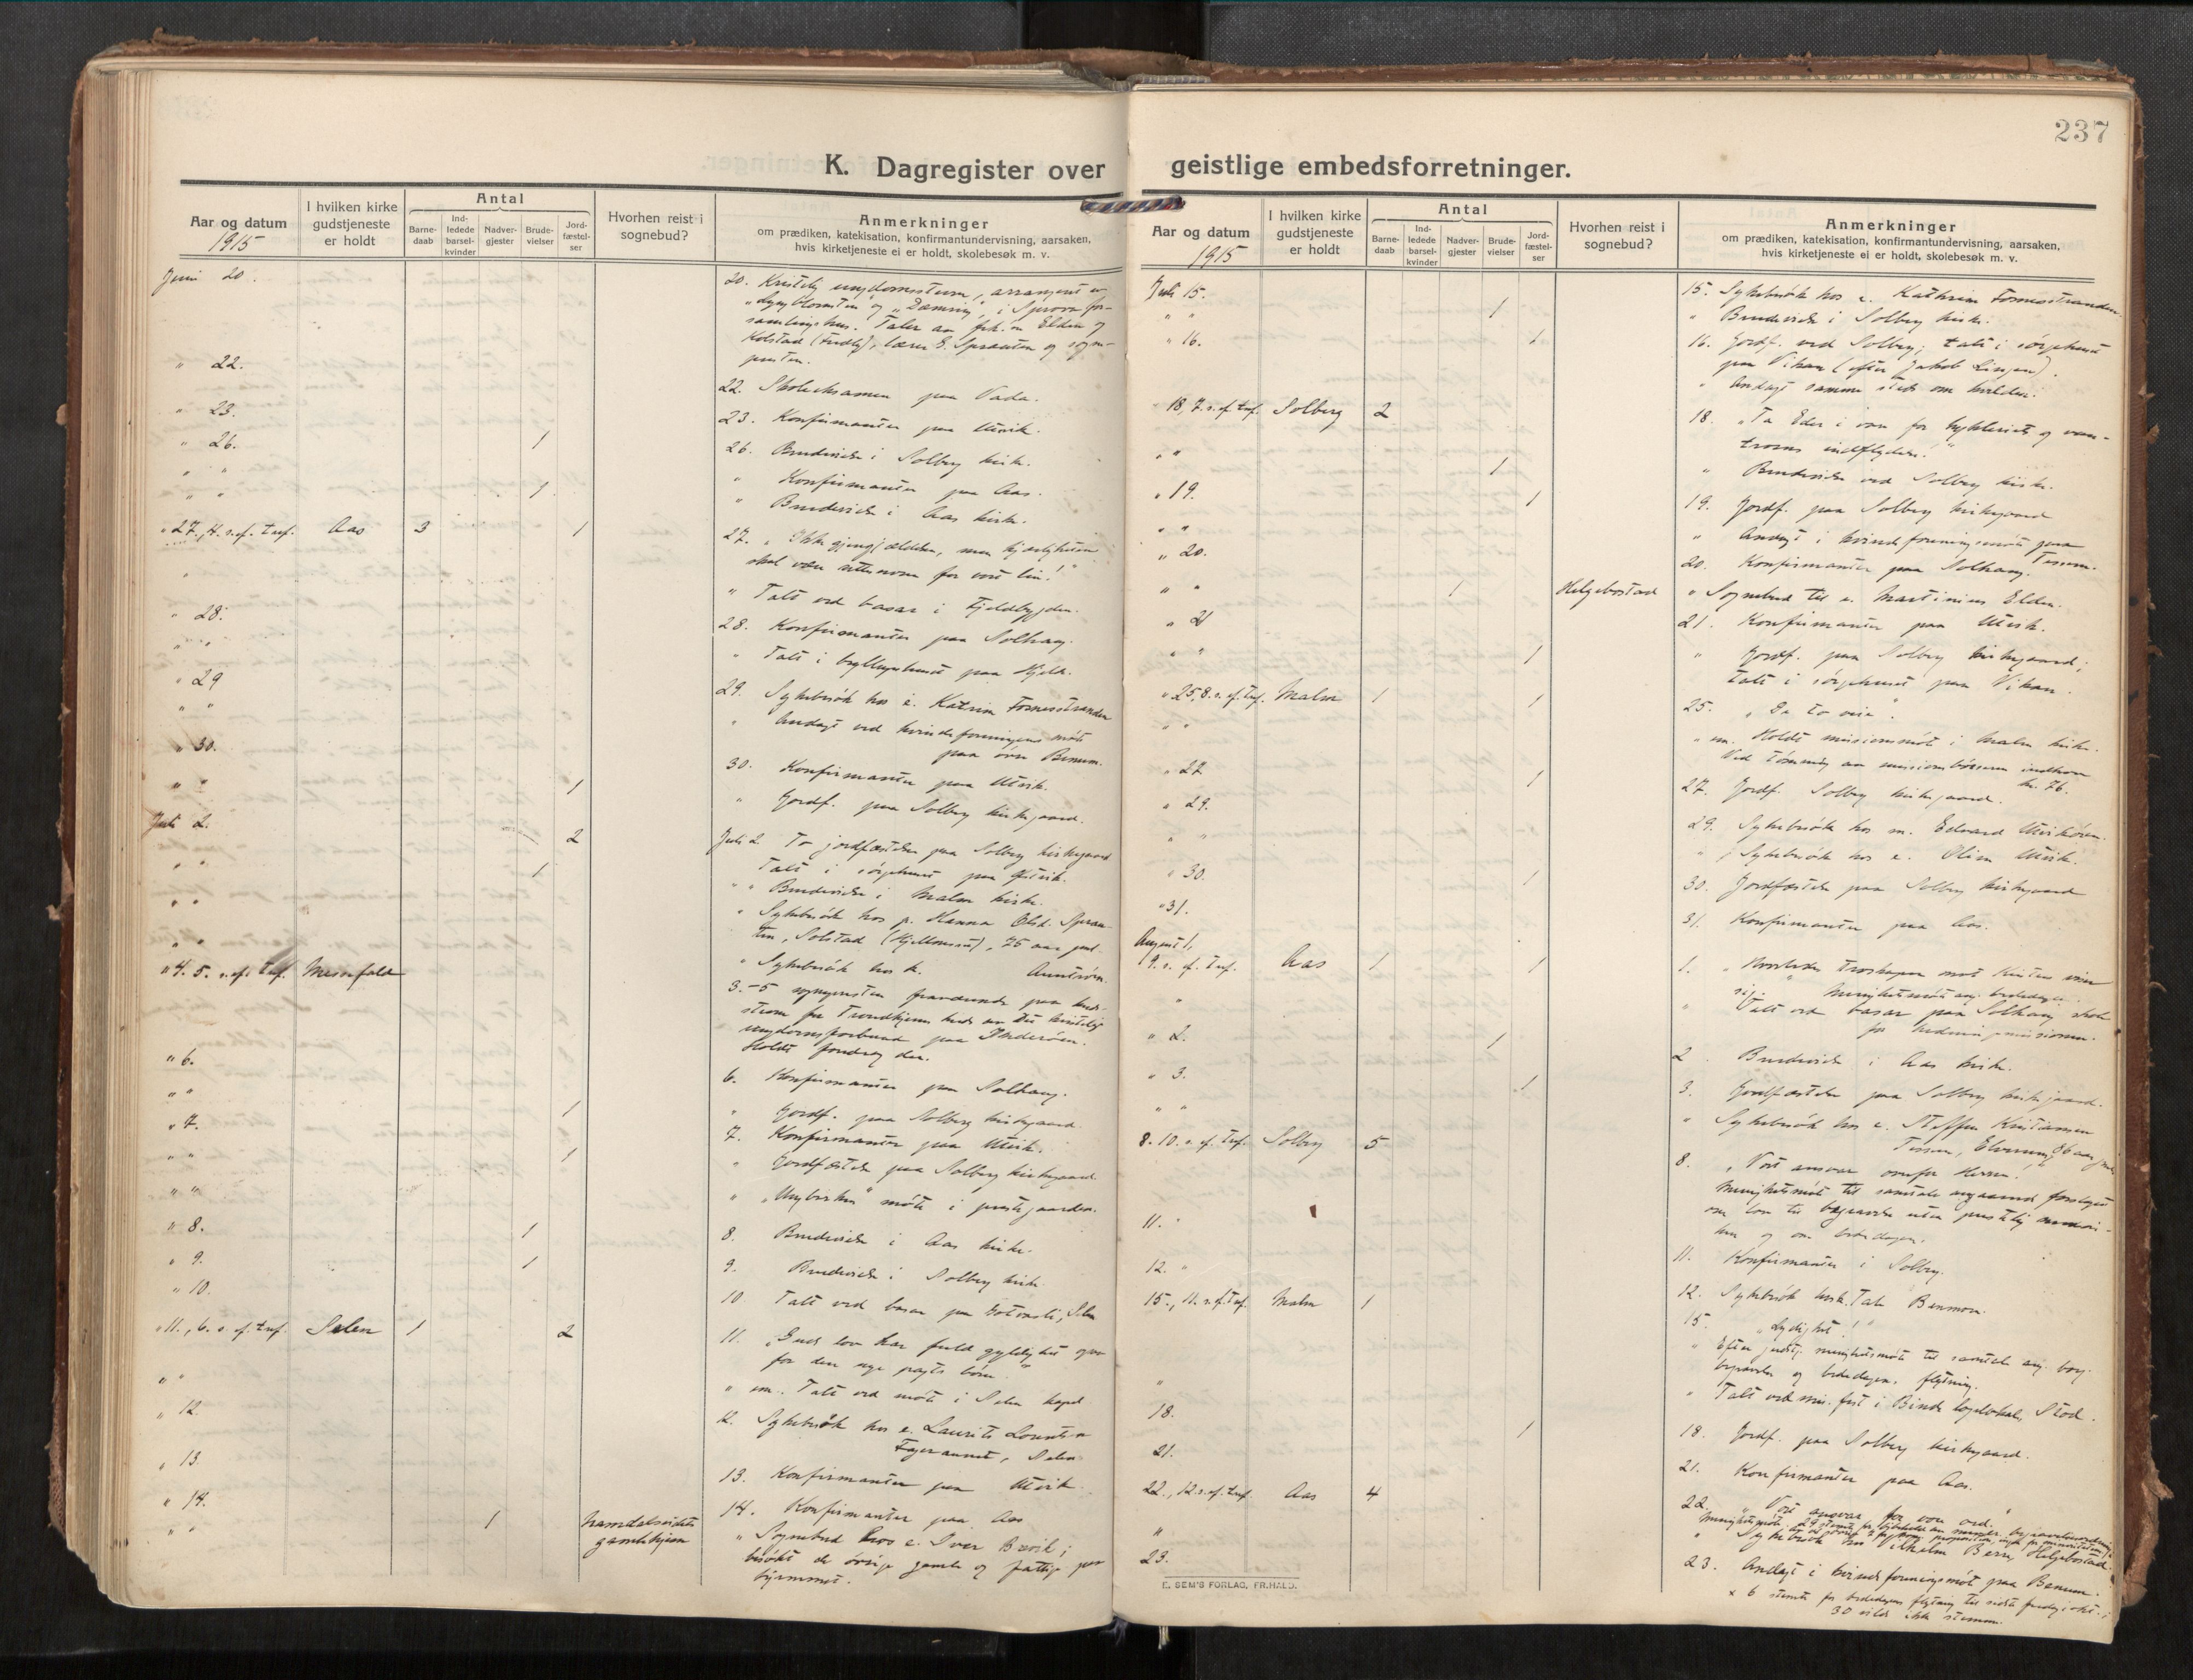 237
K. Dagregister over geistlige embedsforretninger.
Aar og datum
1915
I hvilken kirke gudstjeneste er holdt
Antal
Barne-daab
Ind-ledede barsel-kvinder
Nadver-gjester
Brude-vielser
Jord-fæstel-ser
Hvorhen reist i sognebud?
Anmerkninger
om prædiken, katekisation, konfirmantundervisning, aarsaken,
hvis kirketjeneste ei er holdt, skolebesøk m. v.
Juni 20.
20. Kristelig ungdomsstevne, arrangert av
og "Dæmring", i Sprova for-
samlingshus. Taler av frk.
Kolstad lærer E. Sprauten og sogne-
presten.
" 22.
22. Skoleeksamen paa Vada.
" 23.
23. Konfirmanter paa Utvik.
" 26. 1
26. Brudevielse i Solberg kirke.
" "
" Konfirmanter paa Aas.
" " 1
" Brudevielse i Aas kirke.
" 27., 4. s. ef. tref. Aas 3 1
27. "Ikke gjengjældelse, men kjærligheten
skal være rettesnor for vort liv!"
"
" Talt ved basar i Fjeldbygden.
" 28.
28. Konfirmanter paa Solhaug.
" "
" Talt i bryllupshuset paa Hjelde.
" 29
29. Sykebesök hos e. Katrine Fornesstranden
" "
" Andagt ved kvindeforeningens möte
paa övre Benum.
" 30.
30. Konfirmanter paa Utvik.
" " 1
" Jordf. paa Solberg kirkegaard.
Juli 2. 2
Juli 2. To jordfæstelser paa Solberg kirkegaard
Talt i sörgehuset paa
" " 1
" " Brudevielse i Malm kirke.
" "
" Sykebesök hos p. Hanna Olsd. Sprau-
ten, Solstad 75 aar gml.
" "
" Sykebesök hos k.
" 4. 5. s. ef. tref.
3.-5 sognepresten fraværende paa
stevne for Trondhjems kreds av Det kristelige
ungdomsforbund paa Inderöen.
Holdt foredrag der.
" 6.
6. Konfirmanter paa Solhaug.
" " 1
" Jordf. paa Solberg kirkegaard.
" 7.
7. Konfirmanter paa Utvik.
" " 1
" Jordfæstelse paa Solberg kirkegaard.
" "
" "Ungbirken" möte i prestegaarden.
" 8. 1
8. Brudevielse i Aas kirke.
" 9. 1
9. Brudevielse i Solberg kirke.
" 10.
10. Talt ved basar paa Selen
" 11., 6. s. ef. tref. Selen 1 2
11. "Guds lov har fuld gyldighet ogsaa
for den nye pagts börn."
" "
" em. Talt ved möte i Selen kapel
" 12.
12. Sykebesök hos e. Laurits
Selen
" 13.
13. Konfirmanter paa Utvik
" 14.
14. Konfirmanter paa Aas
" " 1 Namdalseidets gamlehjem
" Sognebud hos e. Iver
besökte de övrige gamle og fattige paa
Aar og datum
1915
I hvilken kirke gudstjeneste er holdt
Antal
Barne-daab
Ind-ledede barsel-kvinder
Nadver-gjester
Brude-vielser
Jord-fæstel-ser
Hvorhen reist i sognebud?
Anmerkninger
om prædiken, katekisation, konfirmantundervisning, aarsaken,
hvis kirketjeneste ei er holdt, skolebesøk m. v.
Juli 15.
15. Sykebesök hos e. Kathrine Fornesstranden.
" " 1
" Brudevielse i Solberg kirke.
" 16. 1
16. Jordf. ved Solberg; talt i sörgehuset
paa Vikan (efter Jakob
" Andagt samme sted om kvelden.
18, 7. s. ef. tref. Solberg 2
18. "Ta Eder i vare for hykleriets og van-
troens indflydelse!"
" " 1
" Brudevielse ved Solberg kirke.
" 19. 1
19. Jordf. paa Solberg kirkegaard
" "
" Andagt i kvindeforeningsmöte paa
Tessem.
" 20.
20. Konfirmanter paa Solhaug.
" " 1 Helgebostad
" Sognebud til e. Martinius Elden.
" 21
21. Konfirmanter paa Utvik.
" " 1
" Jordf. paa Solberg kirkegaard;
talt i sörgehuset paa Vikan.
" 25, 8. s. ef. tref. Malm 1 1
25. "De to veie".
" "
" em. Holdt missionsmöte i Malm kirke.
Ved tömming av missionsbössene indkom
kr. 76.
" 27 1
27. Jordf. Solberg kirkegaard.
" 29.
29. Sykebesök hos m. Edvard
" "
" Sykebesök hos e. Oline Utvik.
" 30. 1
30. Jordfæstelse paa Solberg kirkegaard
" 31.
31. Konfirmanter paa Aas.
August 1,
9. s. ef. tref. Aas 1 1
1. "Hvorledes troskapen mot Kristus viser
sig." Menighetsmöte ang. bededagen.
"
" Talt ved basar paa Solhaug skole
for hedningemissionen.
" 2. 1
2. Brudevielse i Aas kirke.
" 3. 1
3. Jordfæstelse paa Solberg kirkegaard.
" "
" Sykebesök hos e. Steffen Kristiansen
Tessem, 86 aar gml.
8. 10. s. ef. tref. Solberg 5
8. "Vort ansvar overfor Herren!"
Menighetsmöte til samtale angaaende forslaget
om lov til begravelse uten prestelig
og om bededagen.
11. "
11. Konfirmanter i Solberg.
12. "
12. Sykebesök hos k.
15., 11. s. ef. tref. Malm 1
15. "Lydighet!"
" Efter gudstj. menighetsmöte til samtale ang. borg.
begravelse og bededagens flytning.
"
" Talt ved mis. fest i Binde Stod.
18. 1
18. Jordf. paa Solberg kirkegaard.
21.
21. Konfirmanter paa Aas.
22., 12. s. ef. tref. Aas 4
22. "Vort ansvar for vore ord."
Menighetsmöte.
"
" Sykebesök hos Vilhelm Berre, Helgebostad.
23.
23. Andagt i kvindeforeningsmöte paa Benum.
x 6 stemte for bededagens flytning til sidste fredag i okt.;
30 vilde ikke stemme.
E. SEM'S FORLAG, FR.HALD.